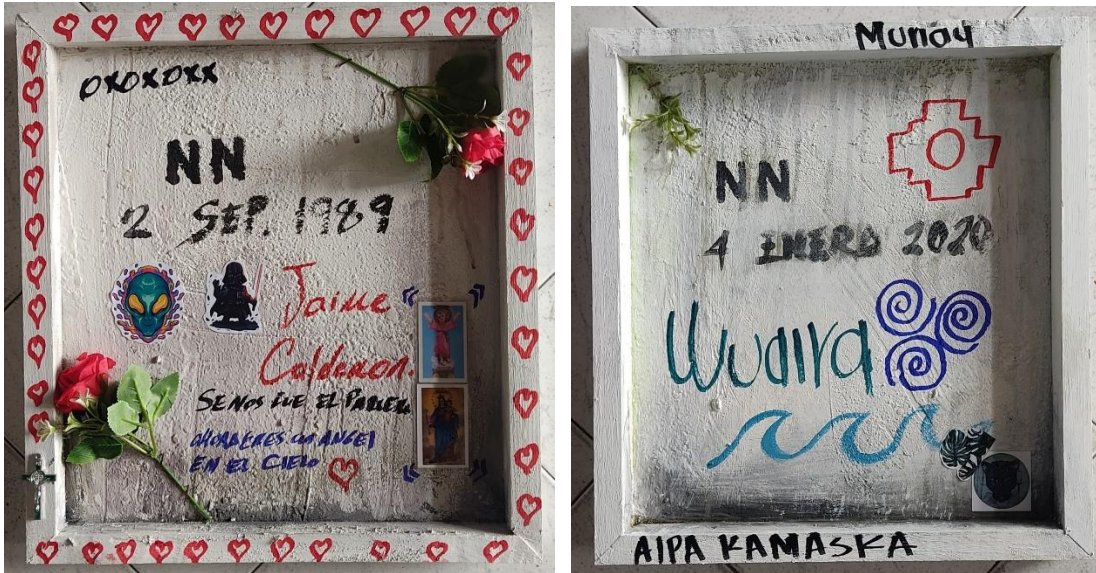 OXOXOXX
NN
2 SEP. 1989
Jaime
Calderon.
SE NOS FUE EL
AHORA ERES UN ANGEL
EN EL CIELO
Munay
NN
4 ENERO 2020
Wuaira
AIPA KAMASKA